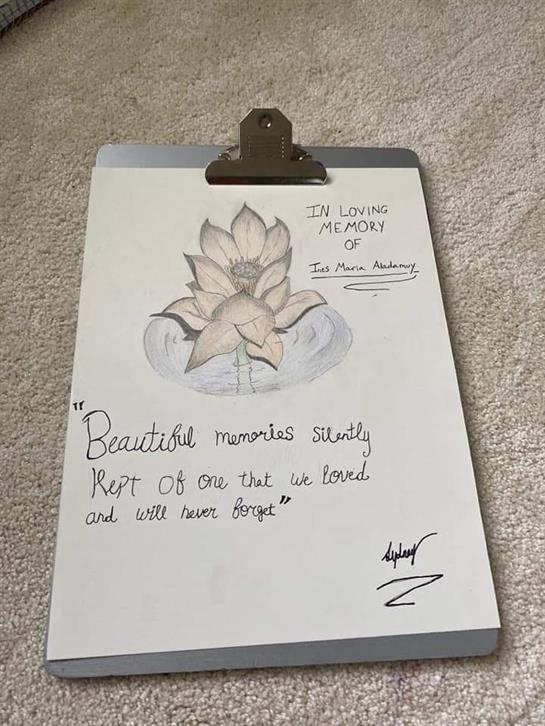 IN LOVING
MEMORY
OF
Ines Maria Aladamuy
"Beautiful memories silently
Kept Of one that we loved
and will never forget"
Sydney